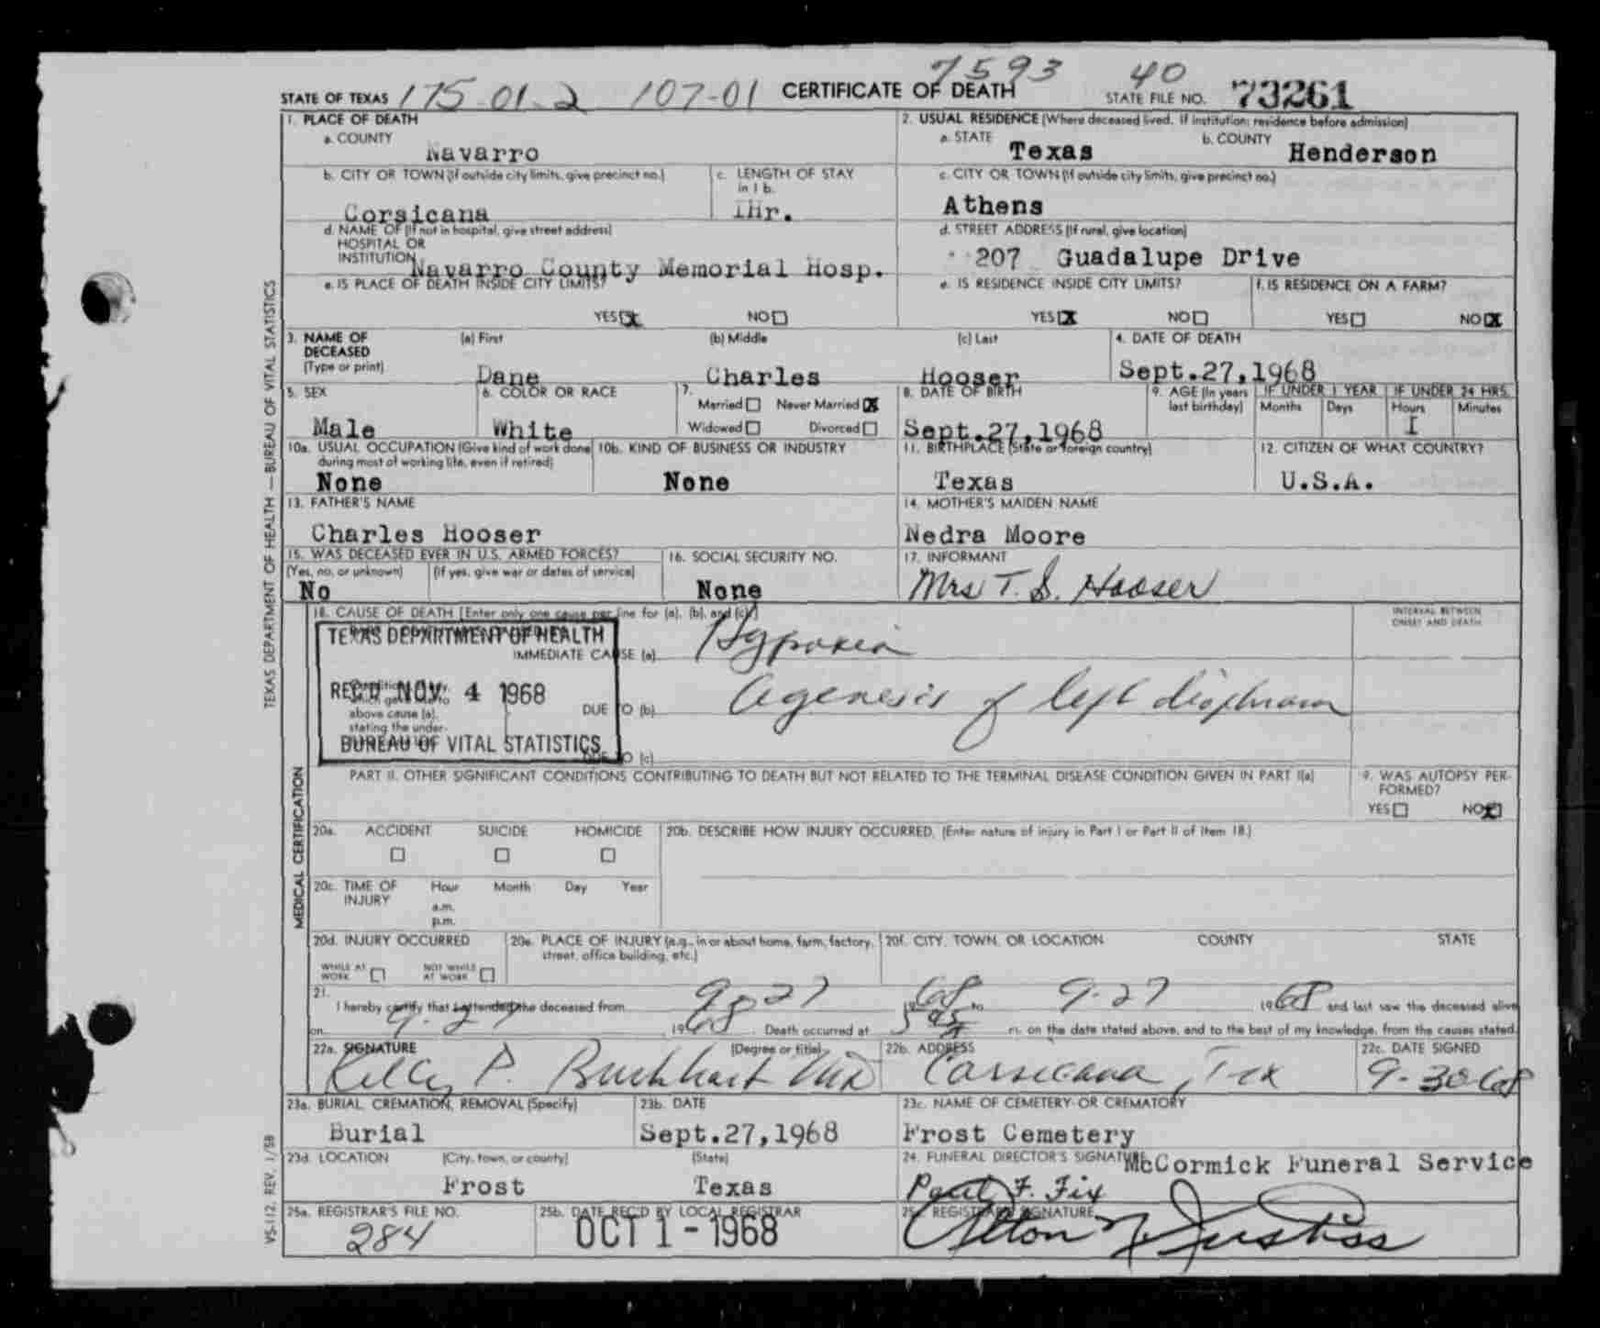 7593 40
STATE OF TEXAS 175-01-2 107-01 CERTIFICATE OF DEATH STATE FILE NO. 73261
1. PLACE OF DEATH 2. USUAL RESIDENCE (Where deceased lived. If institution: residence before admission)
a. COUNTY Navarro a. STATE Texas b. COUNTY Henderson
b. CITY OR TOWN (If outside city limits, give precinct no.) c. LENGTH OF STAY in 1 b. c. CITY OR TOWN (If outside city limits, give precinct no.)
Corsicana 1Hr. Athens
d. NAME OF (If not in hospital, give street address) d. STREET ADDRESS (If rural, give location)
HOSPITAL OR
INSTITUTION Navarro County Memorial Hosp. 207 Guadalupe Drive
e. IS PLACE OF DEATH INSIDE CITY LIMITS? e. IS RESIDENCE INSIDE CITY LIMITS? f. IS RESIDENCE ON A FARM?
YES X NO YES X NO YES NO X
3. NAME OF DECEASED (Type or print) (a) First (b) Middle (c) Last 4. DATE OF DEATH
Dane Charles Hooser Sept.27,1968
5. SEX 6. COLOR OR RACE 7. Married Never Married X Widowed Divorced 8. DATE OF BIRTH 9. AGE (In years last birthday) IF UNDER 1 YEAR Months Days IF UNDER 24 HRS. Hours Minutes
Male White Sept.27,1968 1
10a. USUAL OCCUPATION (Give kind of work done during most of working life, even if retired) 10b. KIND OF BUSINESS OR INDUSTRY 11. BIRTHPLACE (State or foreign country) 12. CITIZEN OF WHAT COUNTRY?
None None Texas U.S.A.
13. FATHER'S NAME 14. MOTHER'S MAIDEN NAME
Charles Hooser Nedra Moore
15. WAS DECEASED EVER IN U.S. ARMED FORCES? 16. SOCIAL SECURITY NO. 17. INFORMANT
(Yes, no, or unknown) (If yes, give war or dates of service)
No None Mrs T. S. Hooser
18. CAUSE OF DEATH [Enter only one cause per line for (a), (b), and (c)] INTERVAL BETWEEN ONSET AND DEATH
TEXAS DEPARTMENT OF HEALTH
IMMEDIATE CAUSE (a) Hypoxia
REC'D NOV. 4 1968
which gave rise to above cause (a), stating the under-
DUE TO (b) Agenesis of left diaphram
BUREAU OF VITAL STATISTICS
DUE TO (c)
PART II. OTHER SIGNIFICANT CONDITIONS CONTRIBUTING TO DEATH BUT NOT RELATED TO THE TERMINAL DISEASE CONDITION GIVEN IN PART I(a) 9. WAS AUTOPSY PERFORMED?
YES NO X
20a. ACCIDENT SUICIDE HOMICIDE 20b. DESCRIBE HOW INJURY OCCURRED. (Enter nature of injury in Part I or Part II of Item 18.)
20c. TIME OF INJURY Hour a.m. p.m. Month Day Year
20d. INJURY OCCURRED 20e. PLACE OF INJURY (e.g., in or about home, farm, factory, street, office building, etc.) 20f. CITY, TOWN, OR LOCATION COUNTY STATE
WHILE AT WORK NOT WHILE AT WORK
21. I hereby certify that I attended the deceased from 9-27 1968 to 9-27 1968 and last saw the deceased alive
on 9-27 1968. Death occurred at m. on the date stated above, and to the best of my knowledge, from the causes stated.
22a. SIGNATURE (Degree or title) 22b. ADDRESS 22c. DATE SIGNED
Kelley P. Burkhart MD Corsicana, Tex 9-30-68
23a. BURIAL, CREMATION, REMOVAL (Specify) 23b. DATE 23c. NAME OF CEMETERY OR CREMATORY
Burial Sept.27,1968 Frost Cemetery
23d. LOCATION (City, town, or county) (State) 24. FUNERAL DIRECTOR'S SIGNATURE McCormick Funeral Service
Frost Texas Paul F. Fix
25a. REGISTRAR'S FILE NO. 25b. DATE REC'D BY LOCAL REGISTRAR 25c. REGISTRAR'S SIGNATURE
284 OCT 1 - 1968 Alton N. Justiss
TEXAS DEPARTMENT OF HEALTH — BUREAU OF VITAL STATISTICS
MEDICAL CERTIFICATION
VS-112. REV. 1/58